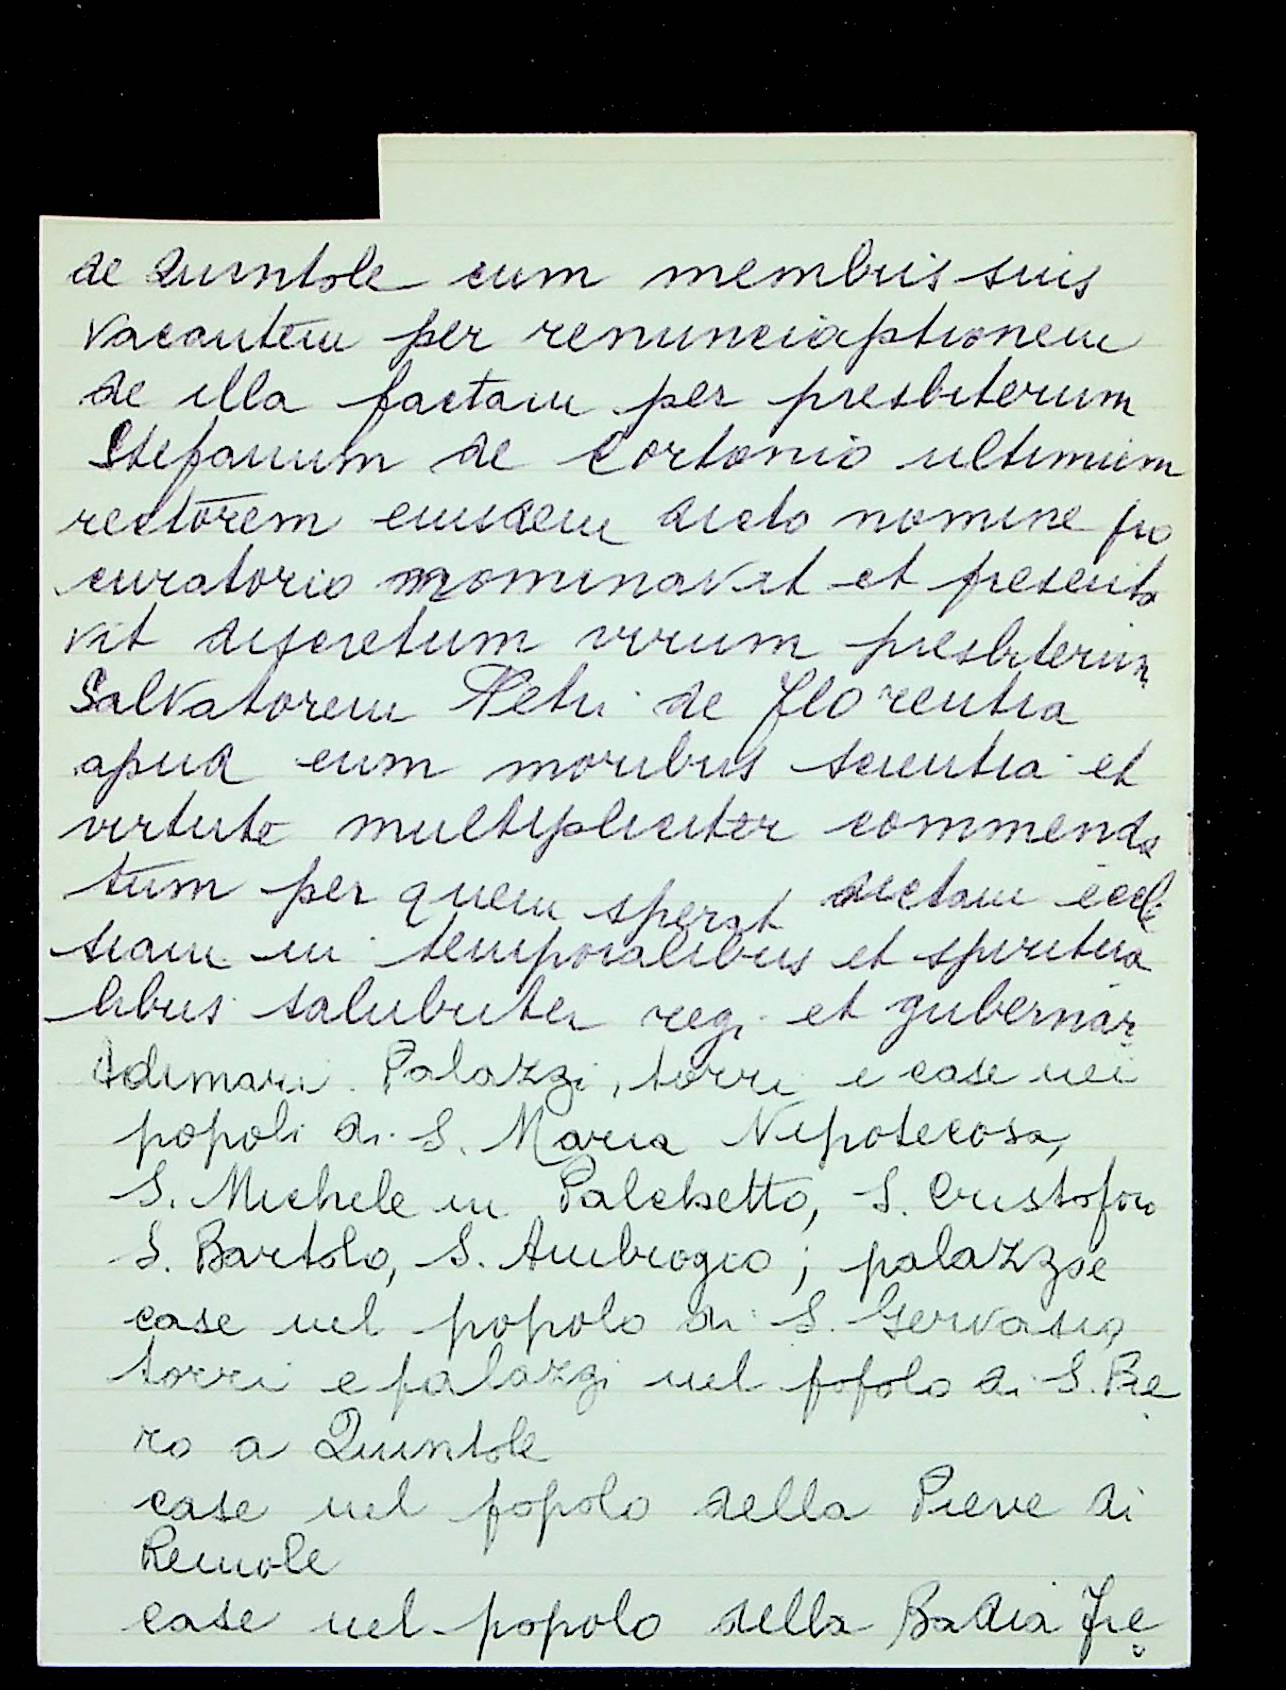 de Quintole cum membris suis
vacantem per renunciaptionem
de illa factam per presbiterum
Stefanum de Cortonio ultimum
rectorem eiusdem dicto nomine pro
curatorio nominavit et presenta
vit discretum virum presbiterum
Salvatorem Petri de Florentia
apud eum moribus scientia et
virtute multipliciter commenda
tum per quem sperat dictam eccle
siam in temporalibus et spiritua
libus salubriter regi et gubernari
Adimari. Palazzi, torri e case nei
popoli di S. Maria Nipotecosa,
S. Michele in Palchetto, S. Cristoforo
S. Bartolo, S. Ambrogio; palazzo e
case nel popolo di S. Gervasio
torri e palazzi nel popolo di S. Pie
ro a Quintole
case nel popolo della Pieve di
Remole
case nel popolo della Badia Fie